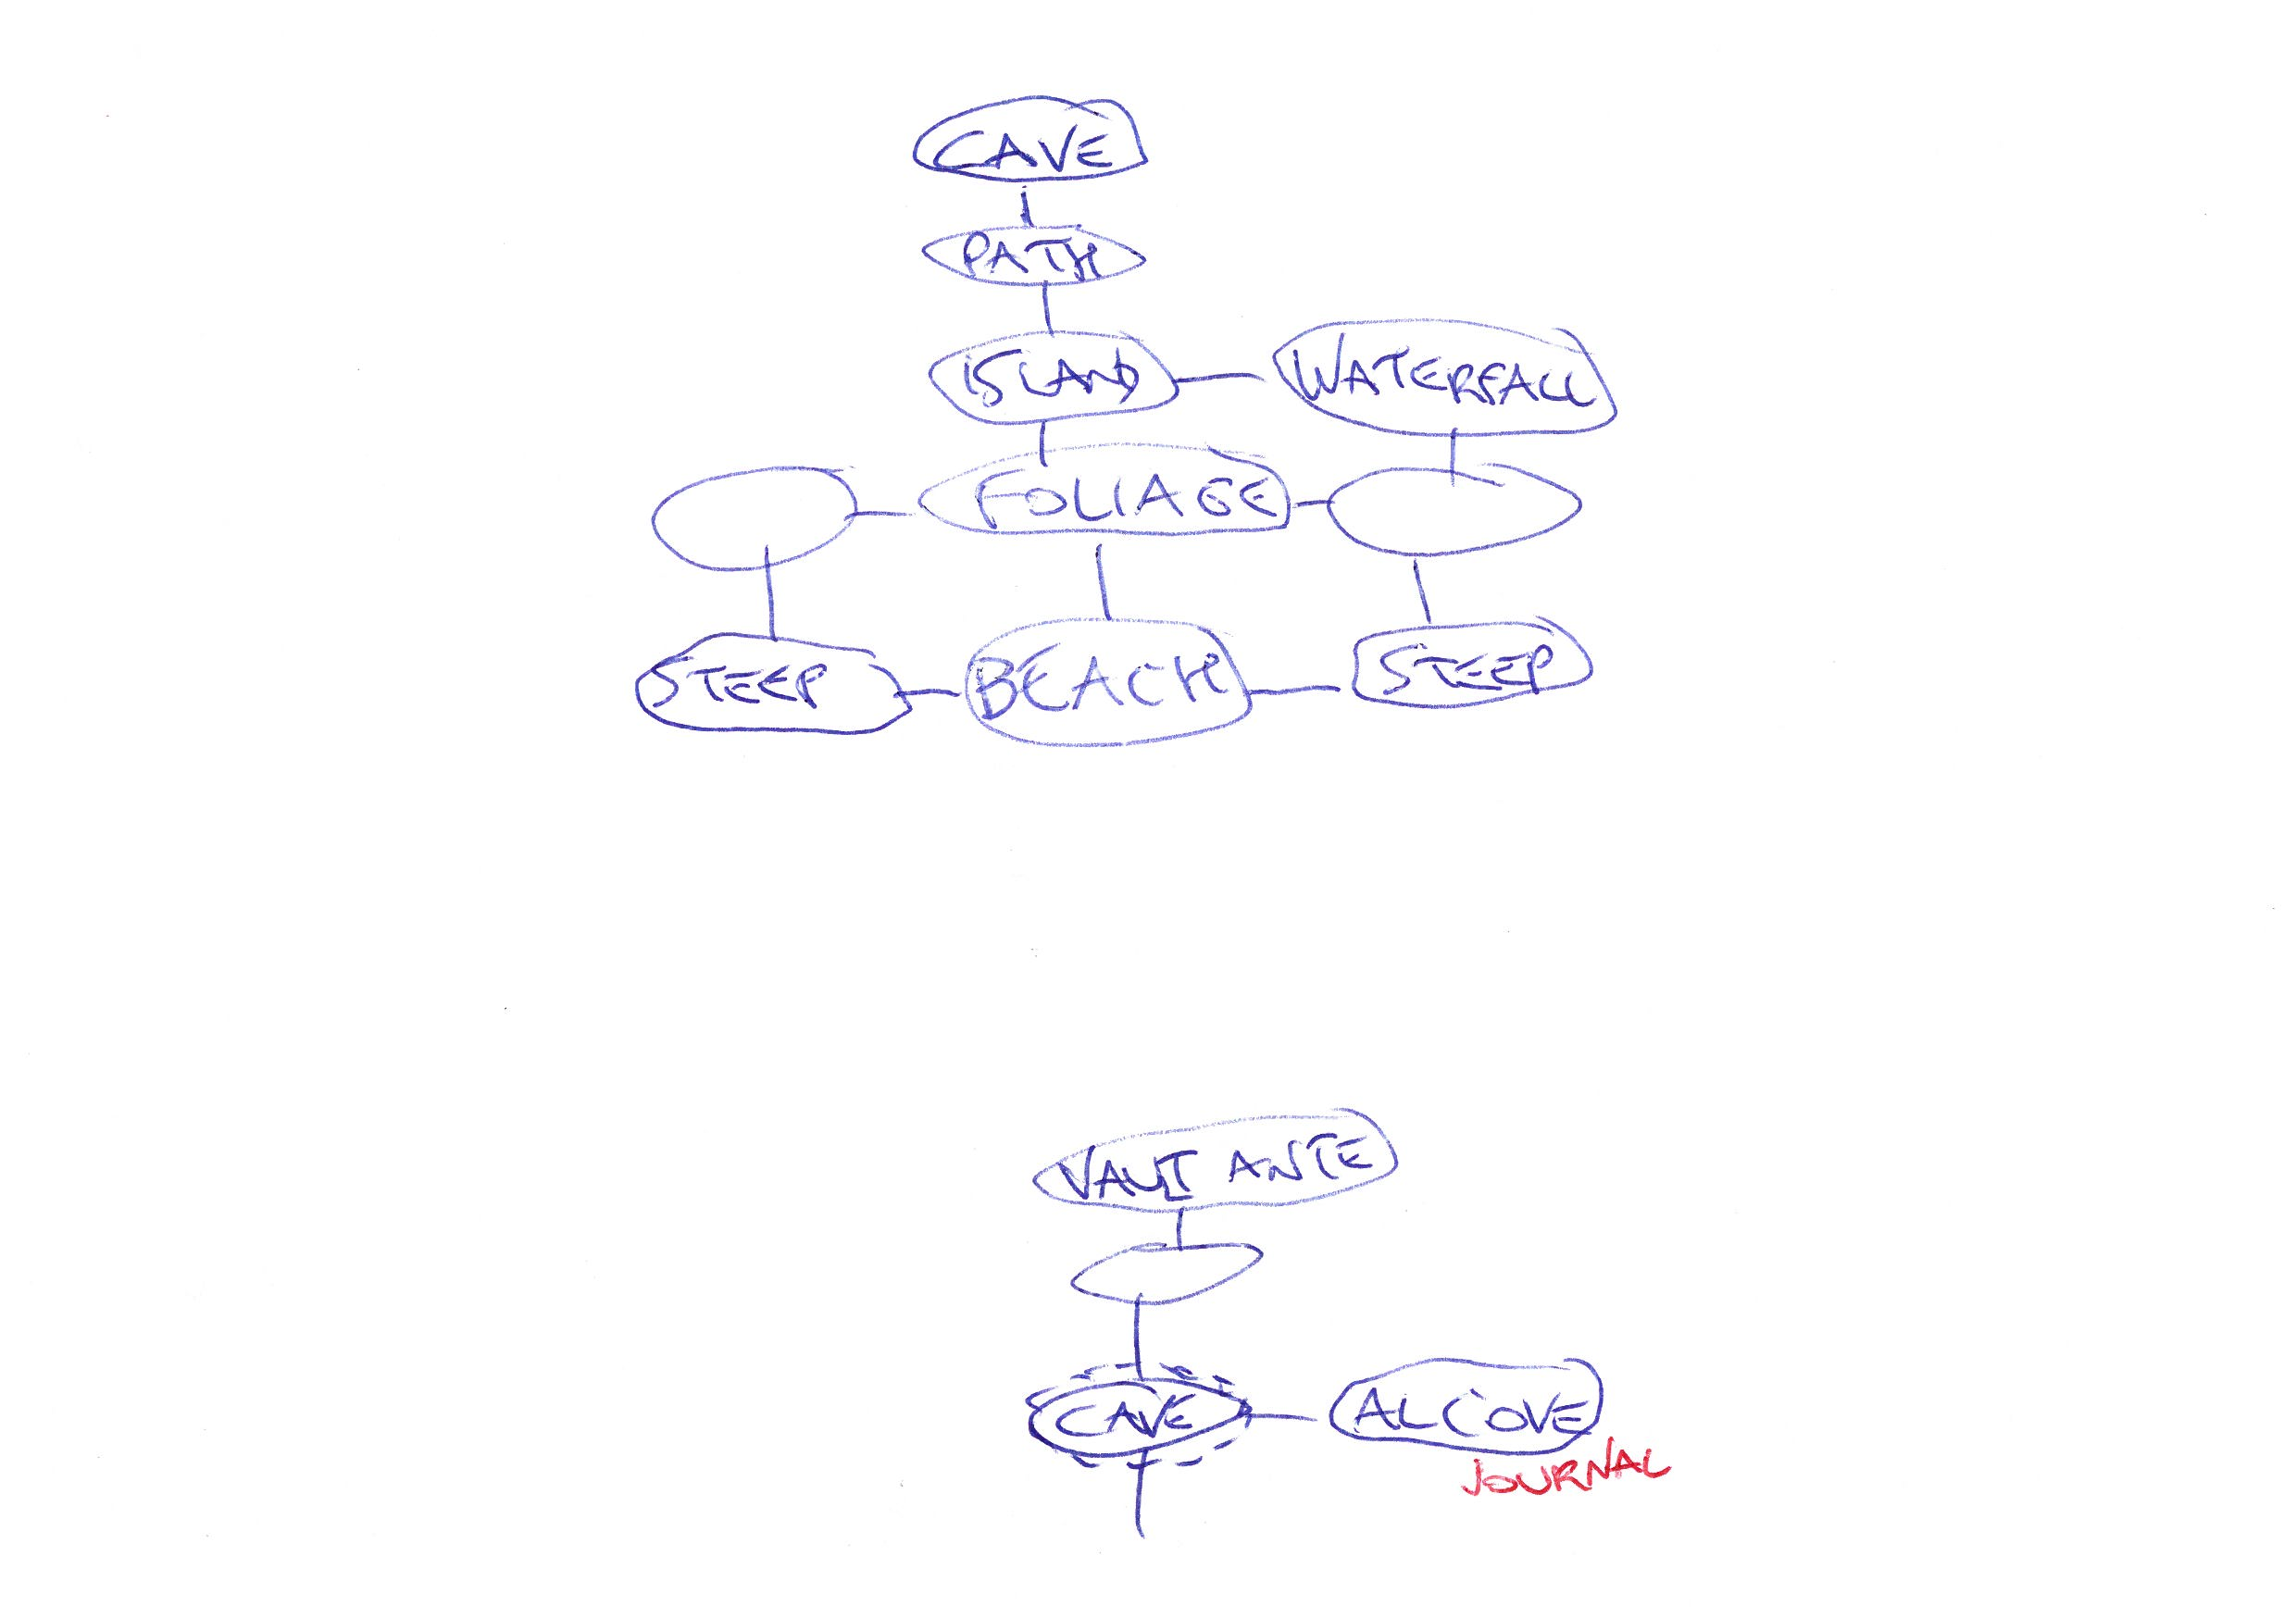 CAVE
PATH
ISLAND
WATERFALL
FOLIAGE
STEEP
BEACH
STEEP
VAULT ANTE
CAVE
ALCOVE
JOURNAL